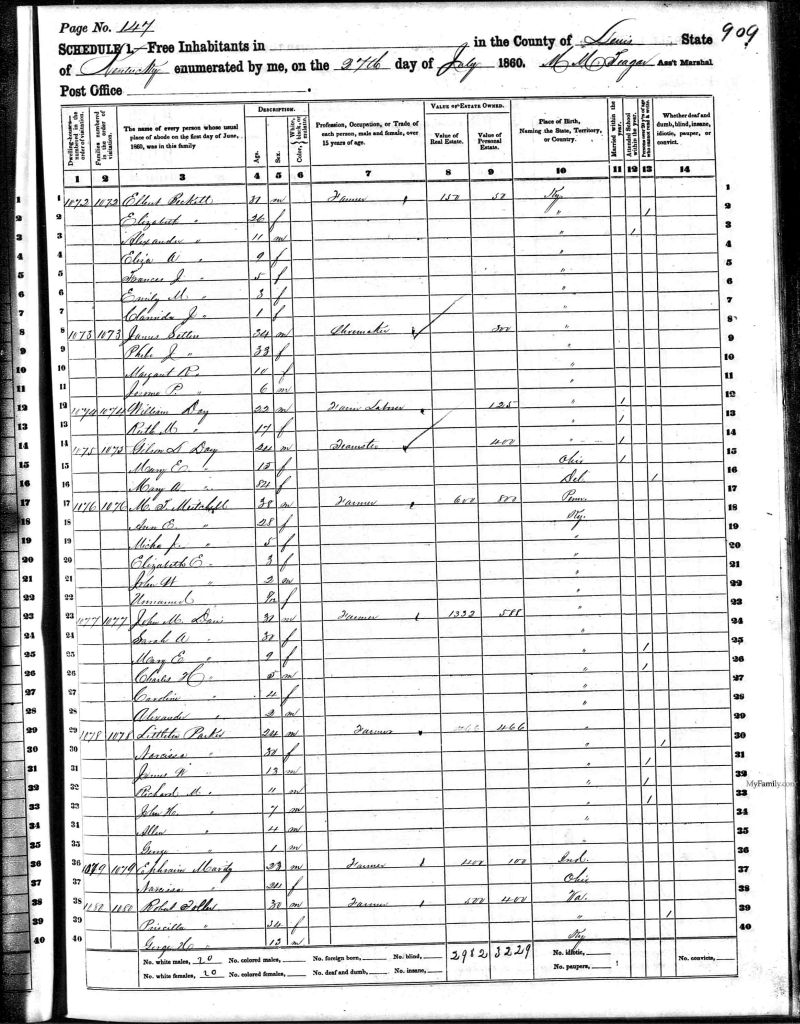 Page No. 147
909
SCHEDULE 1.—Free Inhabitants in in the County of Lewis State
of Kentucky enumerated by me, on the 27th day of July 1860. Ass't Marshal
Post Office
DESCRIPTION. VALUE OF ESTATE OWNED.
Dwelling-houses—numbered in the order of visitation. Families numbered in the order of visitation. The name of every person whose usual place of abode on the first day of June, 1860, was in this family Age. Sex. Color, White, black, or mulatto. Profession, Occupation, or Trade of each person, male and female, over 15 years of age. Value of Real Estate. Value of Personal Estate. Place of Birth, Naming the State, Territory, or Country. Married within the year. Attended School within the year. Whether deaf and dumb, blind, insane, idiotic, pauper, or convict.
1 2 3 4 5 6 7 8 9 10 11 12 13 14
1 1072 1072 m Farmer 150 50 Ky. 1
2 Elizabeth " 26 f " 1 2
3 Alexander " 11 m " 1 3
4 Eliza A " 9 f " 4
5 Frances J " 5 f " 5
6 Emily M. " 3 f " 6
7 J " 1 f " 7
8 1073 1073 James 34 m Shoemaker 300 " 8
9 Phebe J " 33 f " 9
10 Margaret R " 10 f " 10
11 Jerome P. " 6 m " 11
12 1074 1074 William Day 22 m Farm Laborer 125 " 1 12
13 Ruth M " 17 f " 1 13
14 1075 1075 Day 24 m Teamster 400 " 1 14
15 Mary E " 15 f Ohio 1 15
16 Mary A " f Del 1 16
17 1076 1076 M. T. Mitchell 38 m Farmer 600 800 Penn. 17
18 Ann E. " 28 f Ky. 18
19 " 5 f " 19
20 Elizabeth E. " 3 f " 20
21 John W " 2 m " 21
22 Unnamed f " 22
23 1077 1077 John M. Davis m Farmer 1332 588 " 23
24 Sarah A " 30 f " 24
25 Mary E " 9 f " 1 25
26 Charles H " 5 m " 1 26
27 Caroline " 4 f " 27
28 Alexander " 2 m " 28
29 1078 1078 Littleton Parker 24 m Farmer 466 29
30 Narcissa " 30 f " 1 30
31 James W " 13 m " 1 31
32 Richard M. " 11 m " 1
33 John H. " 7 m " 1
34 Allen " 4 m "
35 George " 1 m "
36 1079 1079 Ephraim 23 m Farmer 400 100 Ind. 36
37 Narcissa " 24 f Ohio 37
38 1080 1080 Robert 30 m Farmer 500 400 Va. 38
39 Priscilla " 34 f " 1 39
40 George H " 13 m Ky 40
No. white males, 20 No. colored males, No. foreign born, No. blind, 2982 3229 No. idiotic, No. convicts,
No. white females, 20 No. colored females, No. deaf and dumb, No. insane, No. paupers,
MyFamily.com